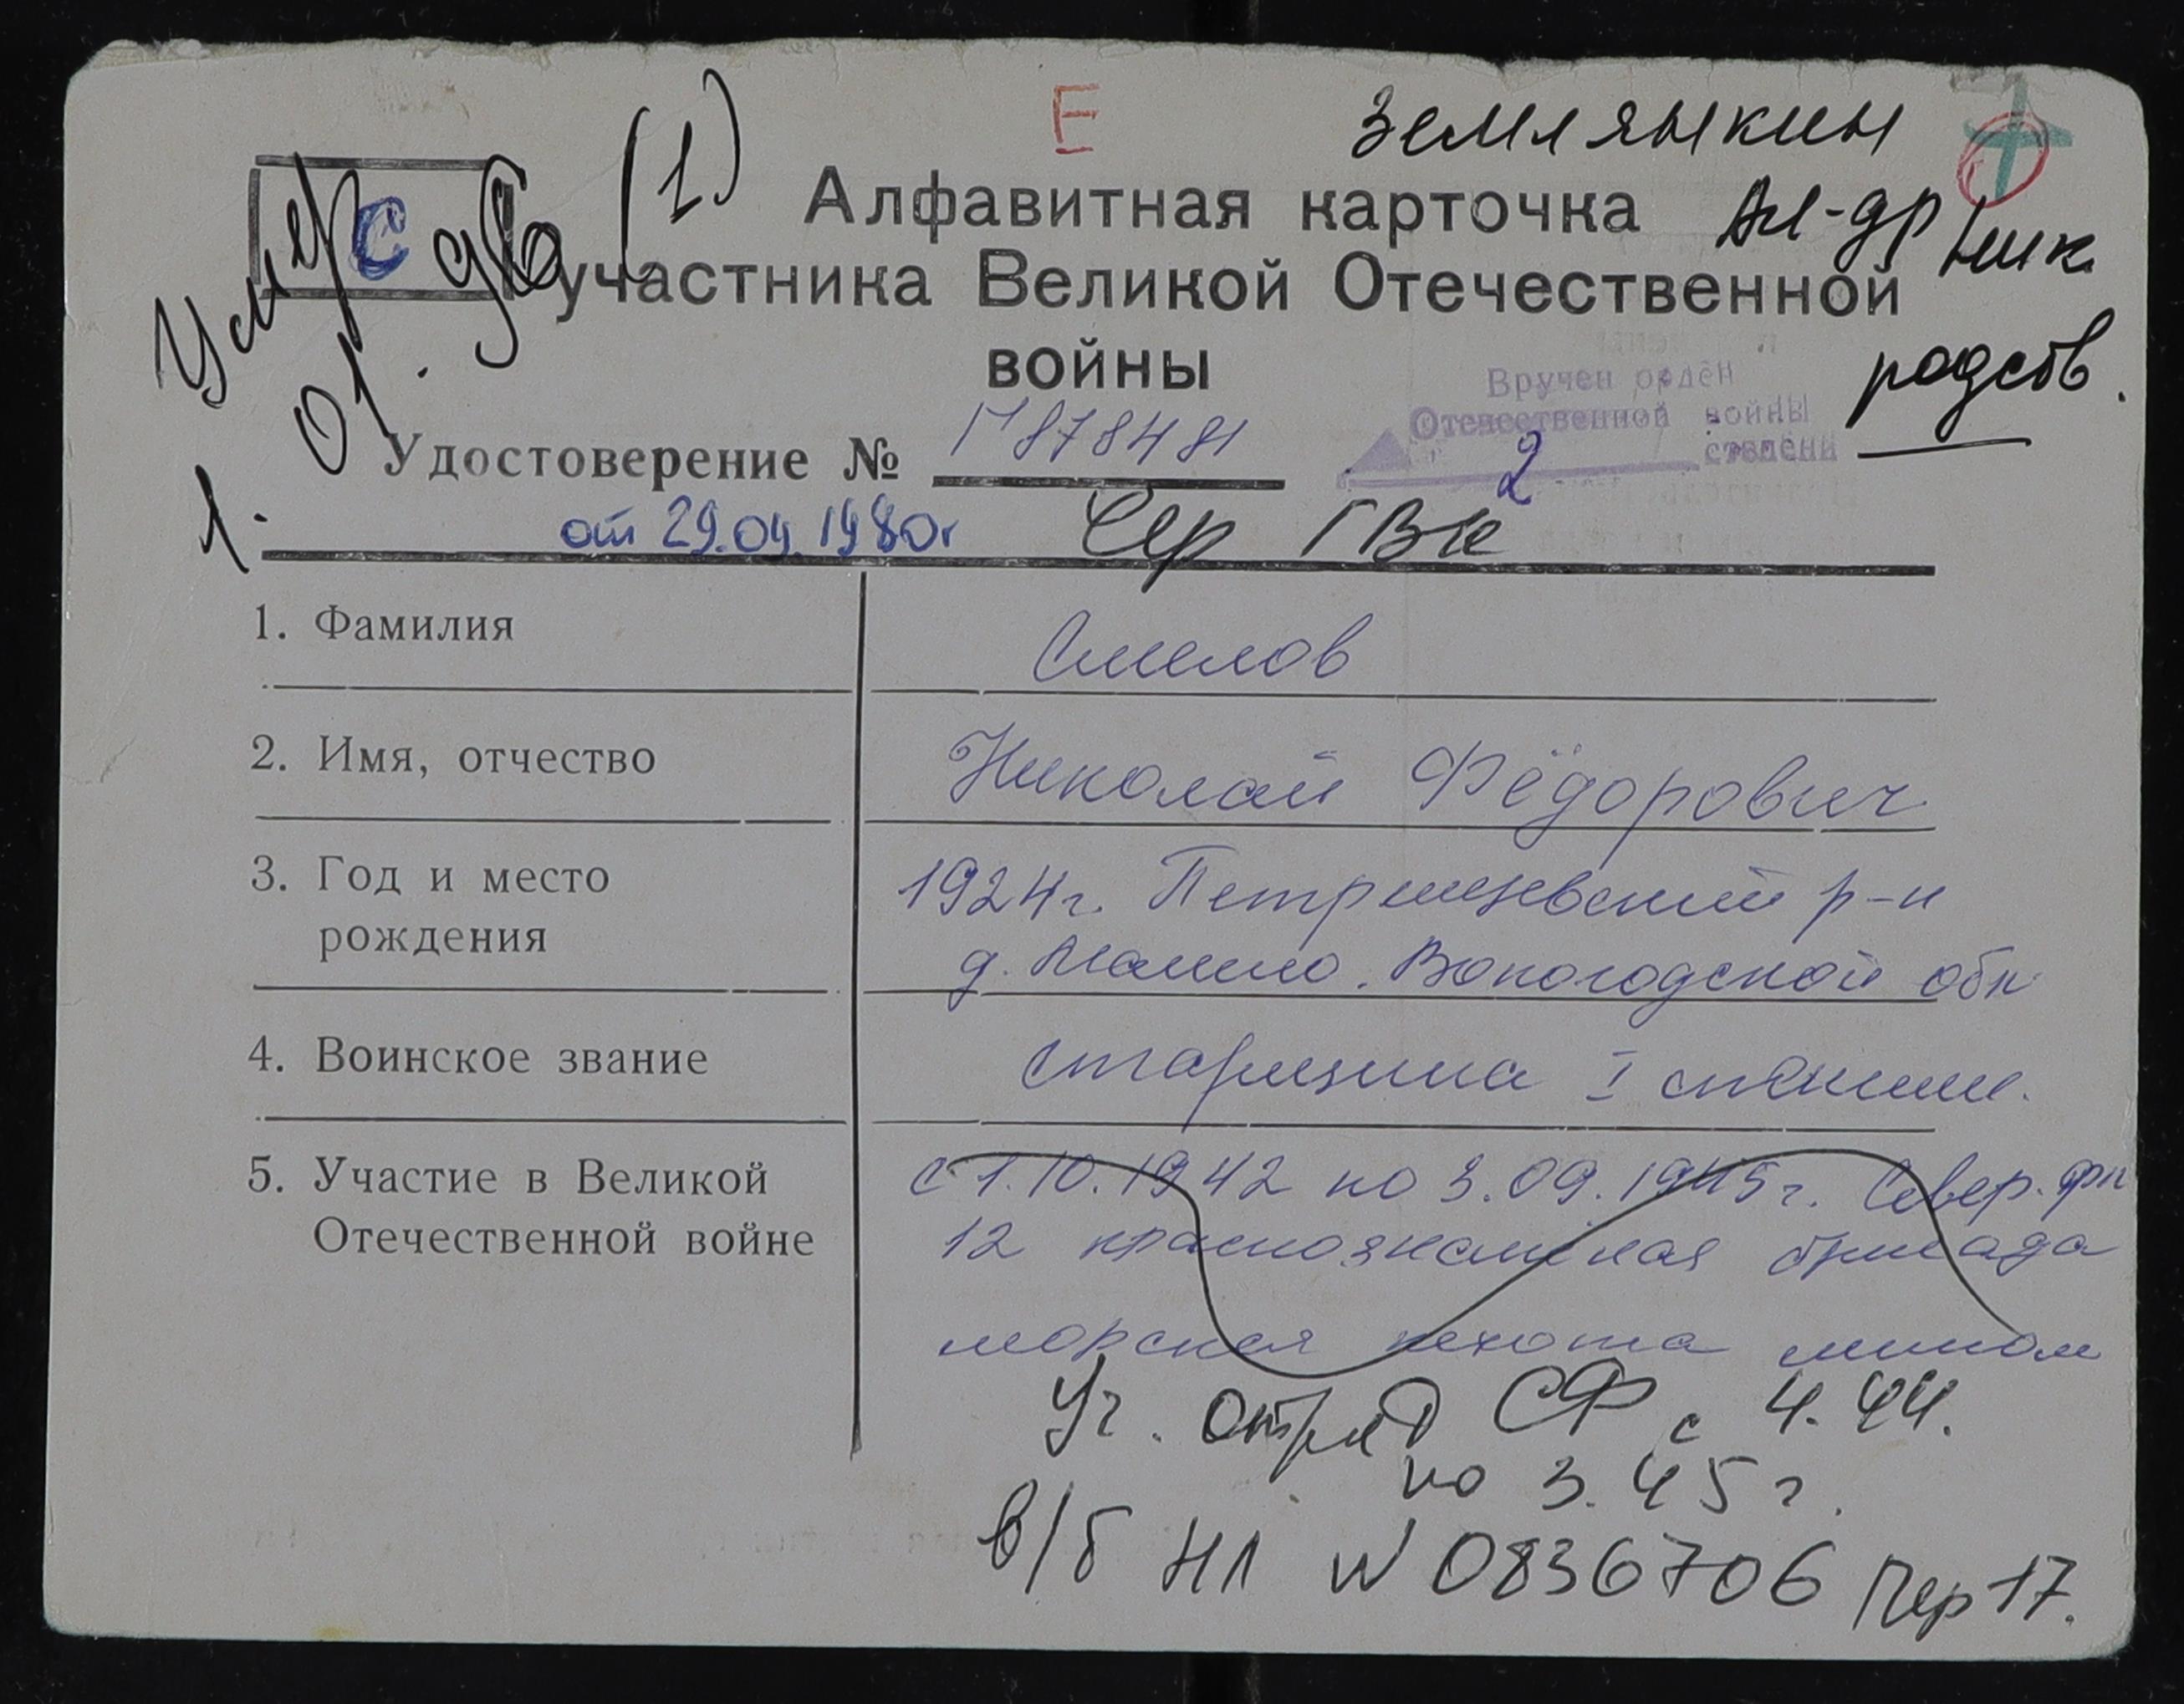 Е
Землянкин
Ал-др Ник.
родств.
Умер
С
(1)
1. 01.
Алфавитная карточка
участника Великой Отечественной
войны
Вручен орден
Отечественной войны
2 степени
Удостоверение № Г 878481
от 29.09.1980г
Сер ГВ №
1. Фамилия
Смелов
2. Имя, отчество
Николай Фёдорович
3. Год и место
рождения
1924г. р-н
д. Вологодской обл
4. Воинское звание
старшина I
5. Участие в Великой
Отечественной войне
с 1.10.1942 по 3.09.1945г. Север. фл
12 краснознамённая бригада
морская пехота
Уч. отряд СФ с 4.44.
по 3.45г.
в/б НЛ № 0836706 Пер 17.